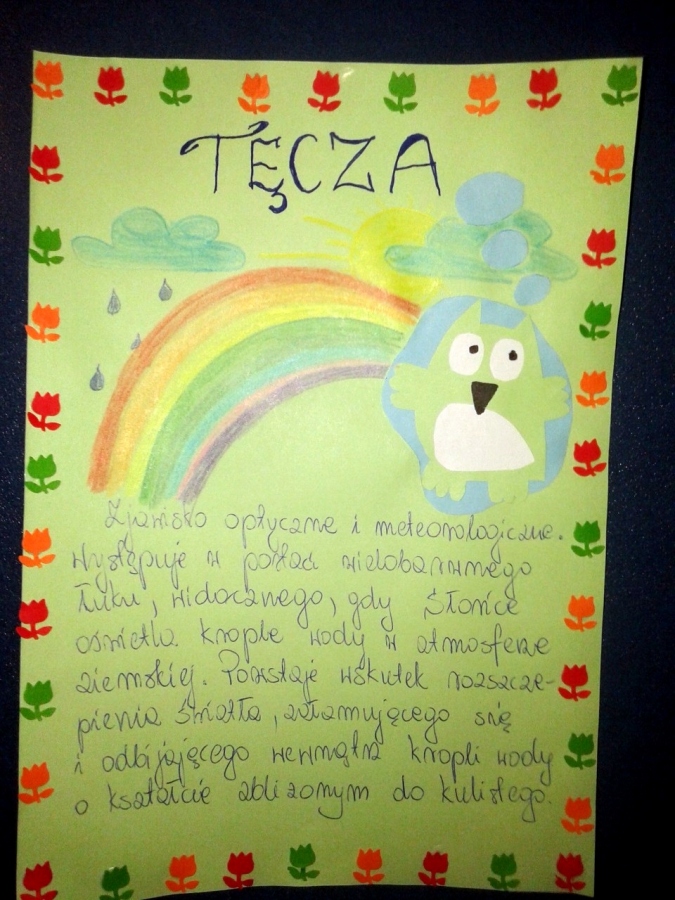 TĘCZA
Zjawisko optyczne i meteorologiczne.
Występuje w postaci wielobarwnego
łuku, widocznego, gdy Słońce
oświetla krople wody w atmosferze
ziemskiej. Powstaje wskutek rozszcze-
pienia światła, załamującego się
i odbijającego wewnątrz kropli wody
o kształcie zbliżonym do kulistego.